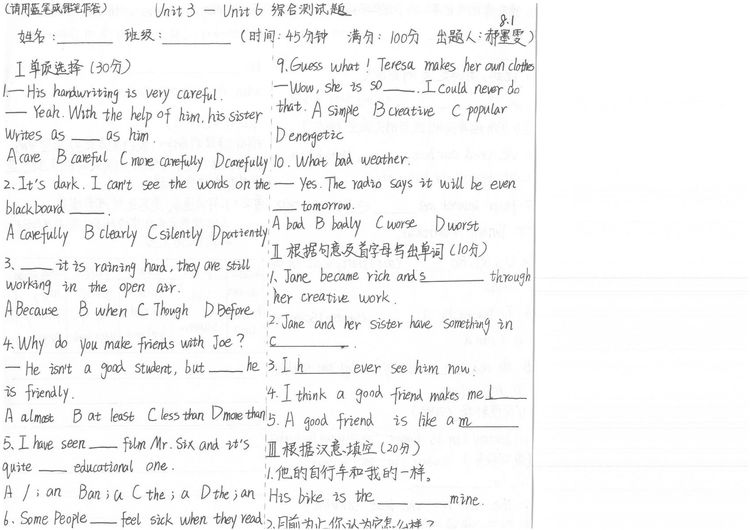 (请用蓝笔或铅笔作答) Unit 3 — Unit 6 综合测试题
8.1
姓名: 班级: (时间: 45分钟 满分: 100分 出题人: 郝墨雯)
I 单项选择 (30分)
1.— His handwriting is very careful.
— Yeah. With the help of him, his sister
writes as ___ as him.
A care B careful C more carefully D carefully
2. It's dark. I can't see the words on the
blackboard ____.
A carefully B clearly C silently D patiently
3、___ it is raining hard, they are still
working in the open air.
A Because B when C Though D Before
4. Why do you make friends with Joe?
— He isn't a good student, but ___ he
is friendly.
A almost B at least C less than D more than
5、I have seen ___ film Mr. Six and it's
quite ___ educational one.
A / ; an B an ; a C the ; a D the ; an
6、Some People ___ feel sick when they read
9. Guess what! Teresa makes her own clothes
—Wow, she is so ____. I could never do
that. A simple B creative C popular
D energetic
10. What bad weather.
— Yes. The radio says it will be even
___ tomorrow.
A bad B badly C worse D worst
II 根据句意及首字母写出单词 (10分)
1、Jane became rich and s______ through
her creative work.
2. Jane and her sister have something in
C________.
3. I h______ ever see him now.
4. I think a good friend makes me l____
5. A good friend is like a m______
III 根据汉意填空 (20分)
1.他的自行车和我的一样。
His bike is the ___ ___ mine.
2.目前为止你认为它怎么样?